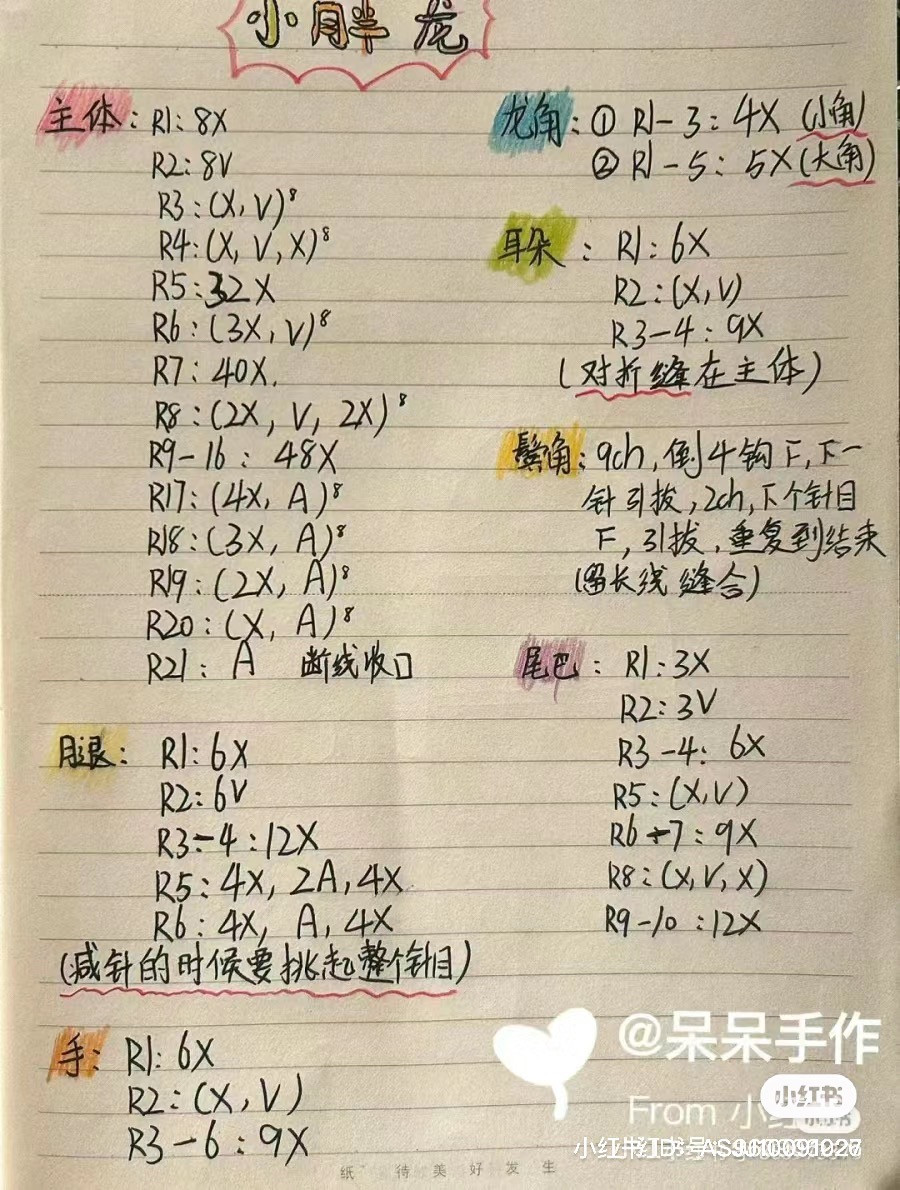 小胖龙
主体: R1: 8X
R2: 8V
R3: (X, V)⁸
R4: (X, V, X)⁸
R5: 32X
R6: (3X, V)⁸
R7: 40X.
R8: (2X, V, 2X)⁸
R9-16: 48X
R17: (4X, A)⁸
R18: (3X, A)⁸
R19: (2X, A)⁸
R20: (X, A)⁸
R21: A 断线收口
腿: R1: 6X
R2: 6V
R3-4: 12X
R5: 4X, 2A, 4X
R6: 4X, A, 4X
(减针的时候要挑起整个针目)
手: R1: 6X
R2: (X, V)
R3-6: 9X
龙角: ① R1-3: 4X (小角)
② R1-5: 5X (大角)
耳朵: R1: 6X
R2: (X, V)
R3-4: 9X
(对折缝在主体)
鬓角: 9ch, 倒4钩F, 下一
针引拔, 2ch, 下个针目
F, 引拔, 重复到结束
(留长线缝合)
尾巴: R1: 3X
R2: 3V
R3-4: 6X
R5: (X, V)
R6-7: 9X
R8: (X, V, X)
R9-10: 12X
@呆呆手作
小红书
From 小红书
纸 待 美 好 发 生